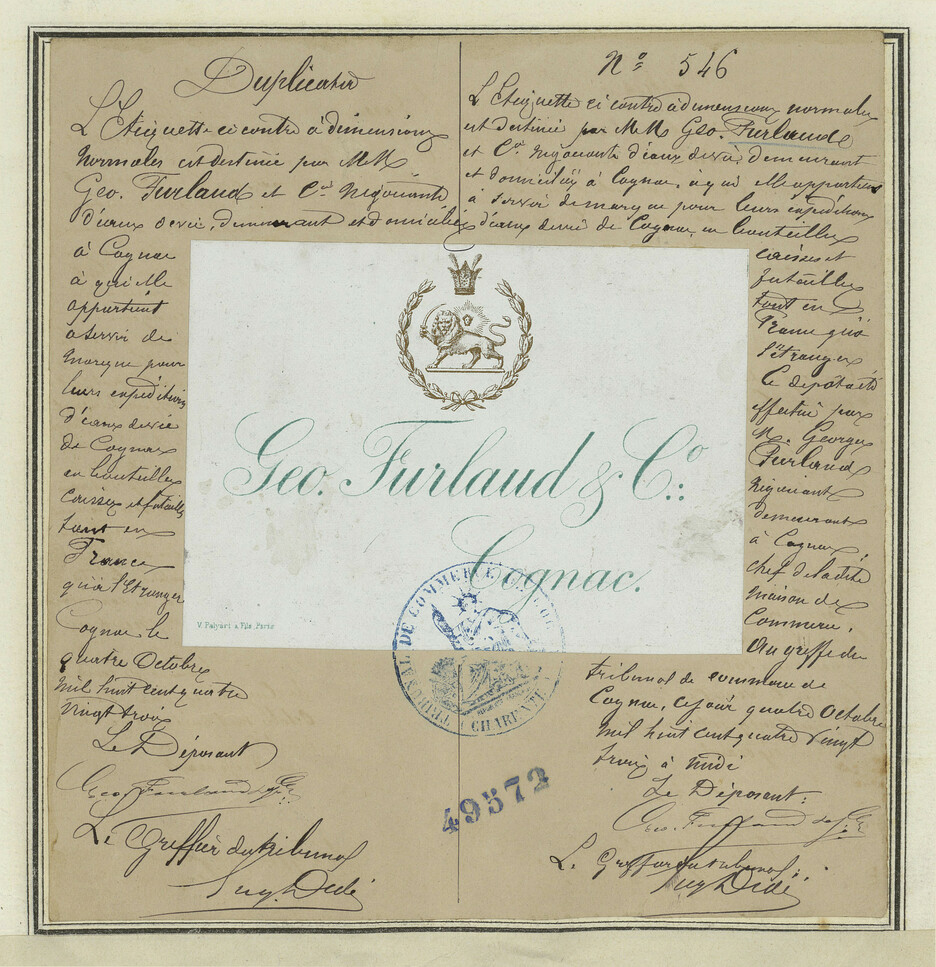 Duplicata
L'Etiquette ci contre à dimensions
normales est destinée par MM
Geo. Furlaud et Cie Négociants
d'eaux de vie, demeurant et domiciliés
à Cognac
à qui elle
appartient
à servir de
marque pour
leurs expéditions
d'eaux de vie
de Cognac
en bouteilles
caisses et futailles
tant en
France
qu'à l'Etranger
Cognac le
quatre Octobre
mil huit cent quatre
vingt trois
Le Déposant
Geo. Furlaud & Co
Le Greffier du tribunal
Eug. Didé
No 546
L'Etiquette ci contre à dimensions normales
est destinée par MM Geo. Furlaud
et Cie Négociants d'eaux de vie, demeurant
et domiciliés à Cognac, à qui elle appartient
à servir de marque pour leurs expéditions
d'eaux de vie de Cognac en bouteilles
caisses et
futailles
tant en
France qu'à
l'Etranger
Le dépôt a été
effectué par
M. Georges
Furlaud
Négociant
demeurant
à Cognac,
chef de la dite
maison de
Commerce.
Au greffe du
tribunal de commerce de
Cognac, ce jour quatre Octobre
mil huit cent quatre vingt
trois à midi
Le Déposant:
Geo. Furlaud & Co
Le Greffier du tribunal:
Eug. Didé
Geo. Furlaud & Co.:
Cognac.
V. Palyart & Fils, Paris
TRIBUNAL DE COMMERCE DE COGNAC
(CHARENTE)
49572